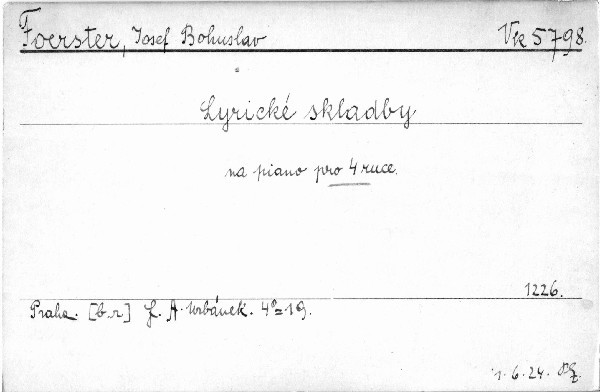 Foerster, Josef Bohuslav Vk 5798.
Lyrické skladby
na piano pro 4 ruce.
1226.
Praha. [b.r] F. A. Urbánek. 4°=19.
1.6.24.